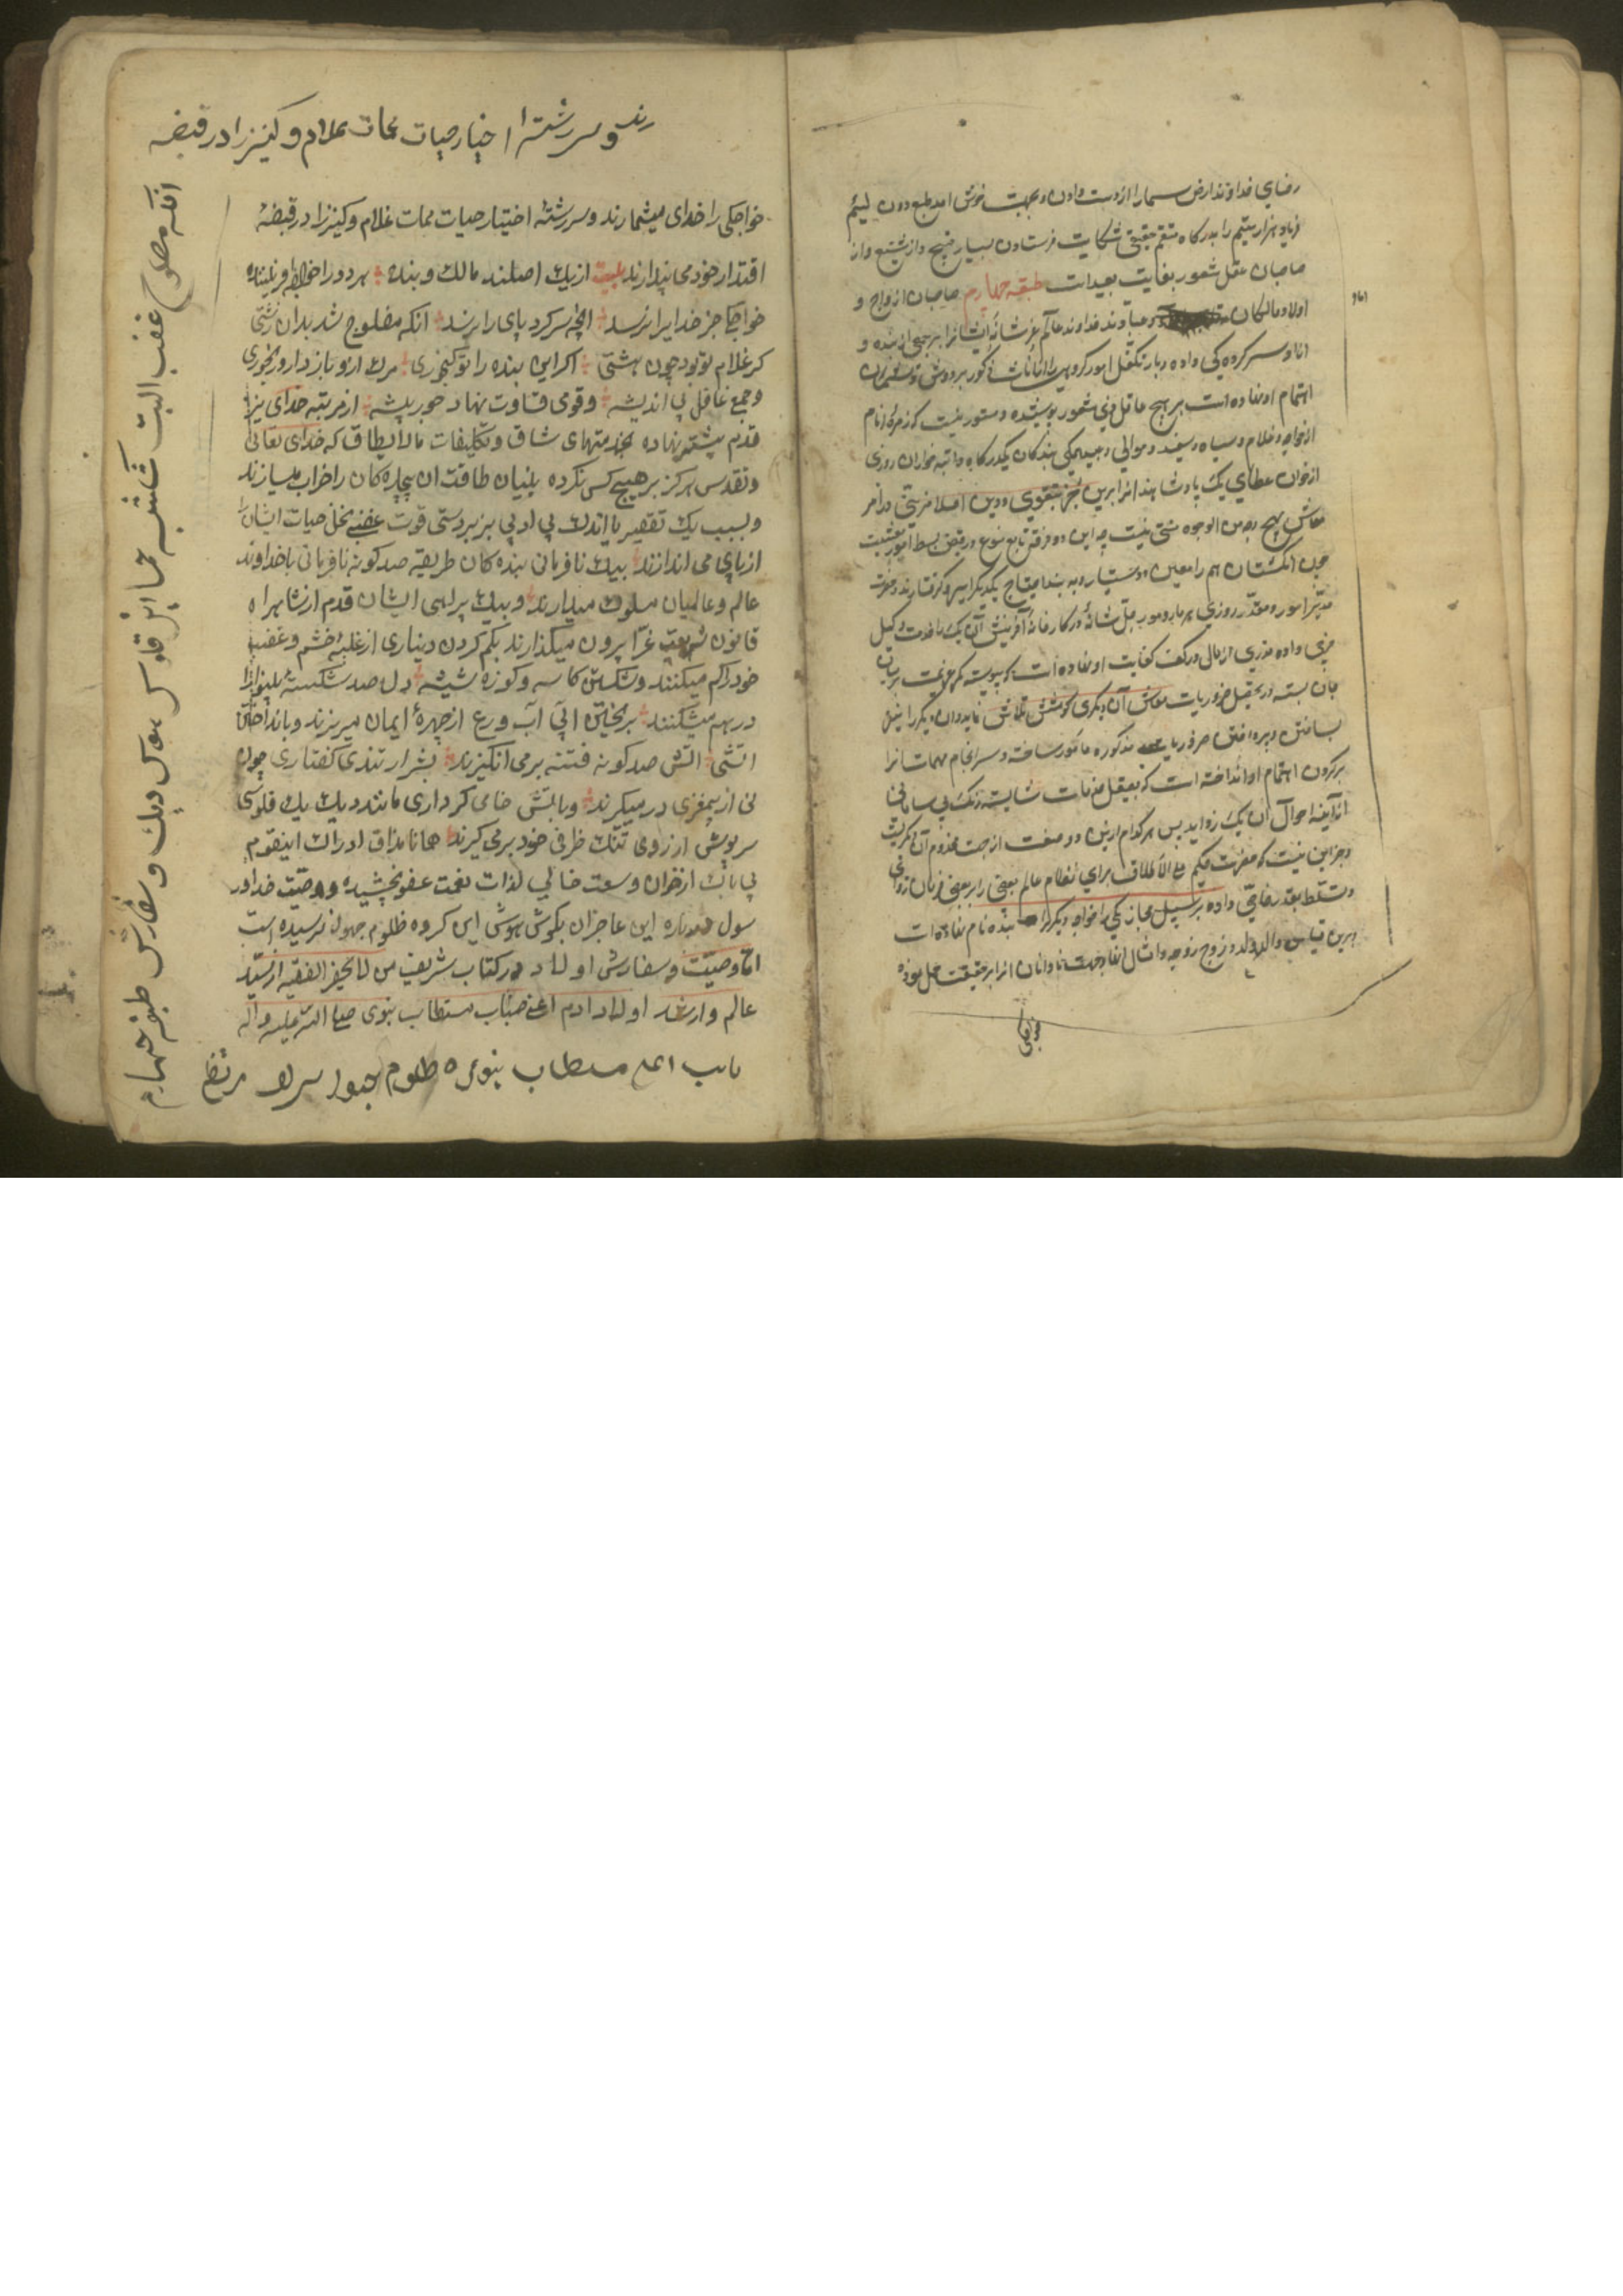 رضای خداوند ارض سما را از دست دادن و بجهت خوش امد طبع دون لئیم
فریاد هزار یتیم را بدرکاه منتقم حقیقی شکایت فرستادن بسیار قبیح و از شنیع و از
صاحبان عقل شعور بغایت بعید است طبقه چهارم صاحبان ازواج و
اولاد و مالکان و عباد ند خداوند عالم عز شانه ایشانرا بر جمعی از بنده و
اناث و سر کرده کی داده و بار تکفل امور کروهی از اناث ذکور بر دوش
اهتمام او نهاده است بر هیچ عاقل ذی شعور پوشیده و مستور نیست که زمره انام
از خواجه و غلام و سیاه و سفید و موالی و عبید همکی بندکان یکدرکاه و راتبه خواران روزی
از خوان عطای یک پادشاهند انرا برین بجز بتقوی و دین اصلا مزیتی و در امر
معاش هیچ وجه من الوجوه منتی نیست چه این دو فرقه تابع متبوع در قبض بسط امور معیشت
چون انکشتان هم را معین و دستیار و به بند احتیاج یکدیکر اسیر و کرفتارند و حضرت
مدبر امور و مقدر روزی هر مار و مور جل شانه در کارخانه آفرینش آن یک را خدمت کیل
مزی داده و زری از مالی در کف کفایت او نهاده است که پیوسته کمر عزیمت بر میان
جان بسته در تحصیل ضروریات معاش آن دیکری کوشش تلاش نماید و ان دیکر را بشغل
ساختن و پرداختن ضروریات مذکوره مامور ساخته و سر انجام مهمات انرا
بر کردن اهتمام او انداخته است که بصیقل خدمات شایسته زنک بی سامانی
از آینه احوال ان یک زداید پس هر کدام ازین دو صفت از جهت مخدوم آن دیکریست
و جز این نیست که حضرت حکیم علی الاطلاق برای نظام عالم بعضی را بر بعضی فرمان روائی
و تسلط بقدر رفاقتی داده بر سبیل مجاز یکی را خواجه و دیکر را بنده نام نهاده است
و برین قیاس والد و ولد و زوج زوجه و امثال انها و جهت نادانان انرا بر حقیقت حمل نموده
خواجکی
رند و سررشته اختیار حیات ممات غلام و کنیز را در قبضه
خواجکی را خدای میشمارند و سررشتهٔ اختیار حیات ممات غلام و کنیز را در قبضهٔ
اقتدار خود می پندارند بیت از یک اصلند مالک و بنده هر دو را خواجه افریننده
خواجکی جز خدایرا نرسد انچه سر کرد پای را نرسد انکه مفلوج شد بدان زشتی
کر غلام تو بود چون هشتی اکر این بنده را تو کنجوری مرک ازو باز دار و رنجوری
و جمع غافل بی اندیشه و قوی قساوت نهاد جور پیشه از مرتبه خدای نیز
قدم پیشتر نهاده بخدمتهای شاق و تکلیفات مالایطاق که خدای تعالی
و تقدس هرکز بر هیچ کس نکرده بنیان طاقت ان بیچاره کان را خراب میسازند
و بسبب یک تقصیر یا اندک بی ادبی بزبردستی قوت غضب نخل حیات ایشان را
از پای می اندازند بیک نافرمانی بنده کان طریقه صد کونه نافرمانی با خداوند
عالم و عالمیان مسلوک میدارند و بیک بیراهی ایشان قدم از شاهراه
قانون شریعت غرا بیرون میکذارند بکم کردن دیناری از غلبهٔ خشم و غضب
خود را کم میکنند و شکستن کاسه و کوزه شیشه دل صد شکسته بینوا را
درهم میشکنند بریختن ابی آب ورع از چهرهٔ ایمان میریزند و بانداختن
اتشی اتش صد کونه فتنه برمی انکیزند بشرار تندی کفتاری چون
نی از بیمغزی درمیکیرند و باتش خامی کرداری مانند دیک یک فلوسی
سرپوش از روی تنک ظرفی خود برمی کیرند همانا مذاق ادراک اینقوم
بی باک از خوان وسعت خالی لذات نعمت عفو نچشیده و وصیت خدا و ر
سول در باره این عاجزان بکوش هوش این کروه ظلوم جهول نرسیده است
اما وصیت و سفارش اولاد در کتاب شریف من لا یحضر الفقیه از سید
عالم و ارشد اولاد ادم اعنی جناب مستطاب نبوی صلی الله علیه و اله
انکه مفلوج غضب البت حیات قلوس هوس دیک و سفارش طبقه چهارم